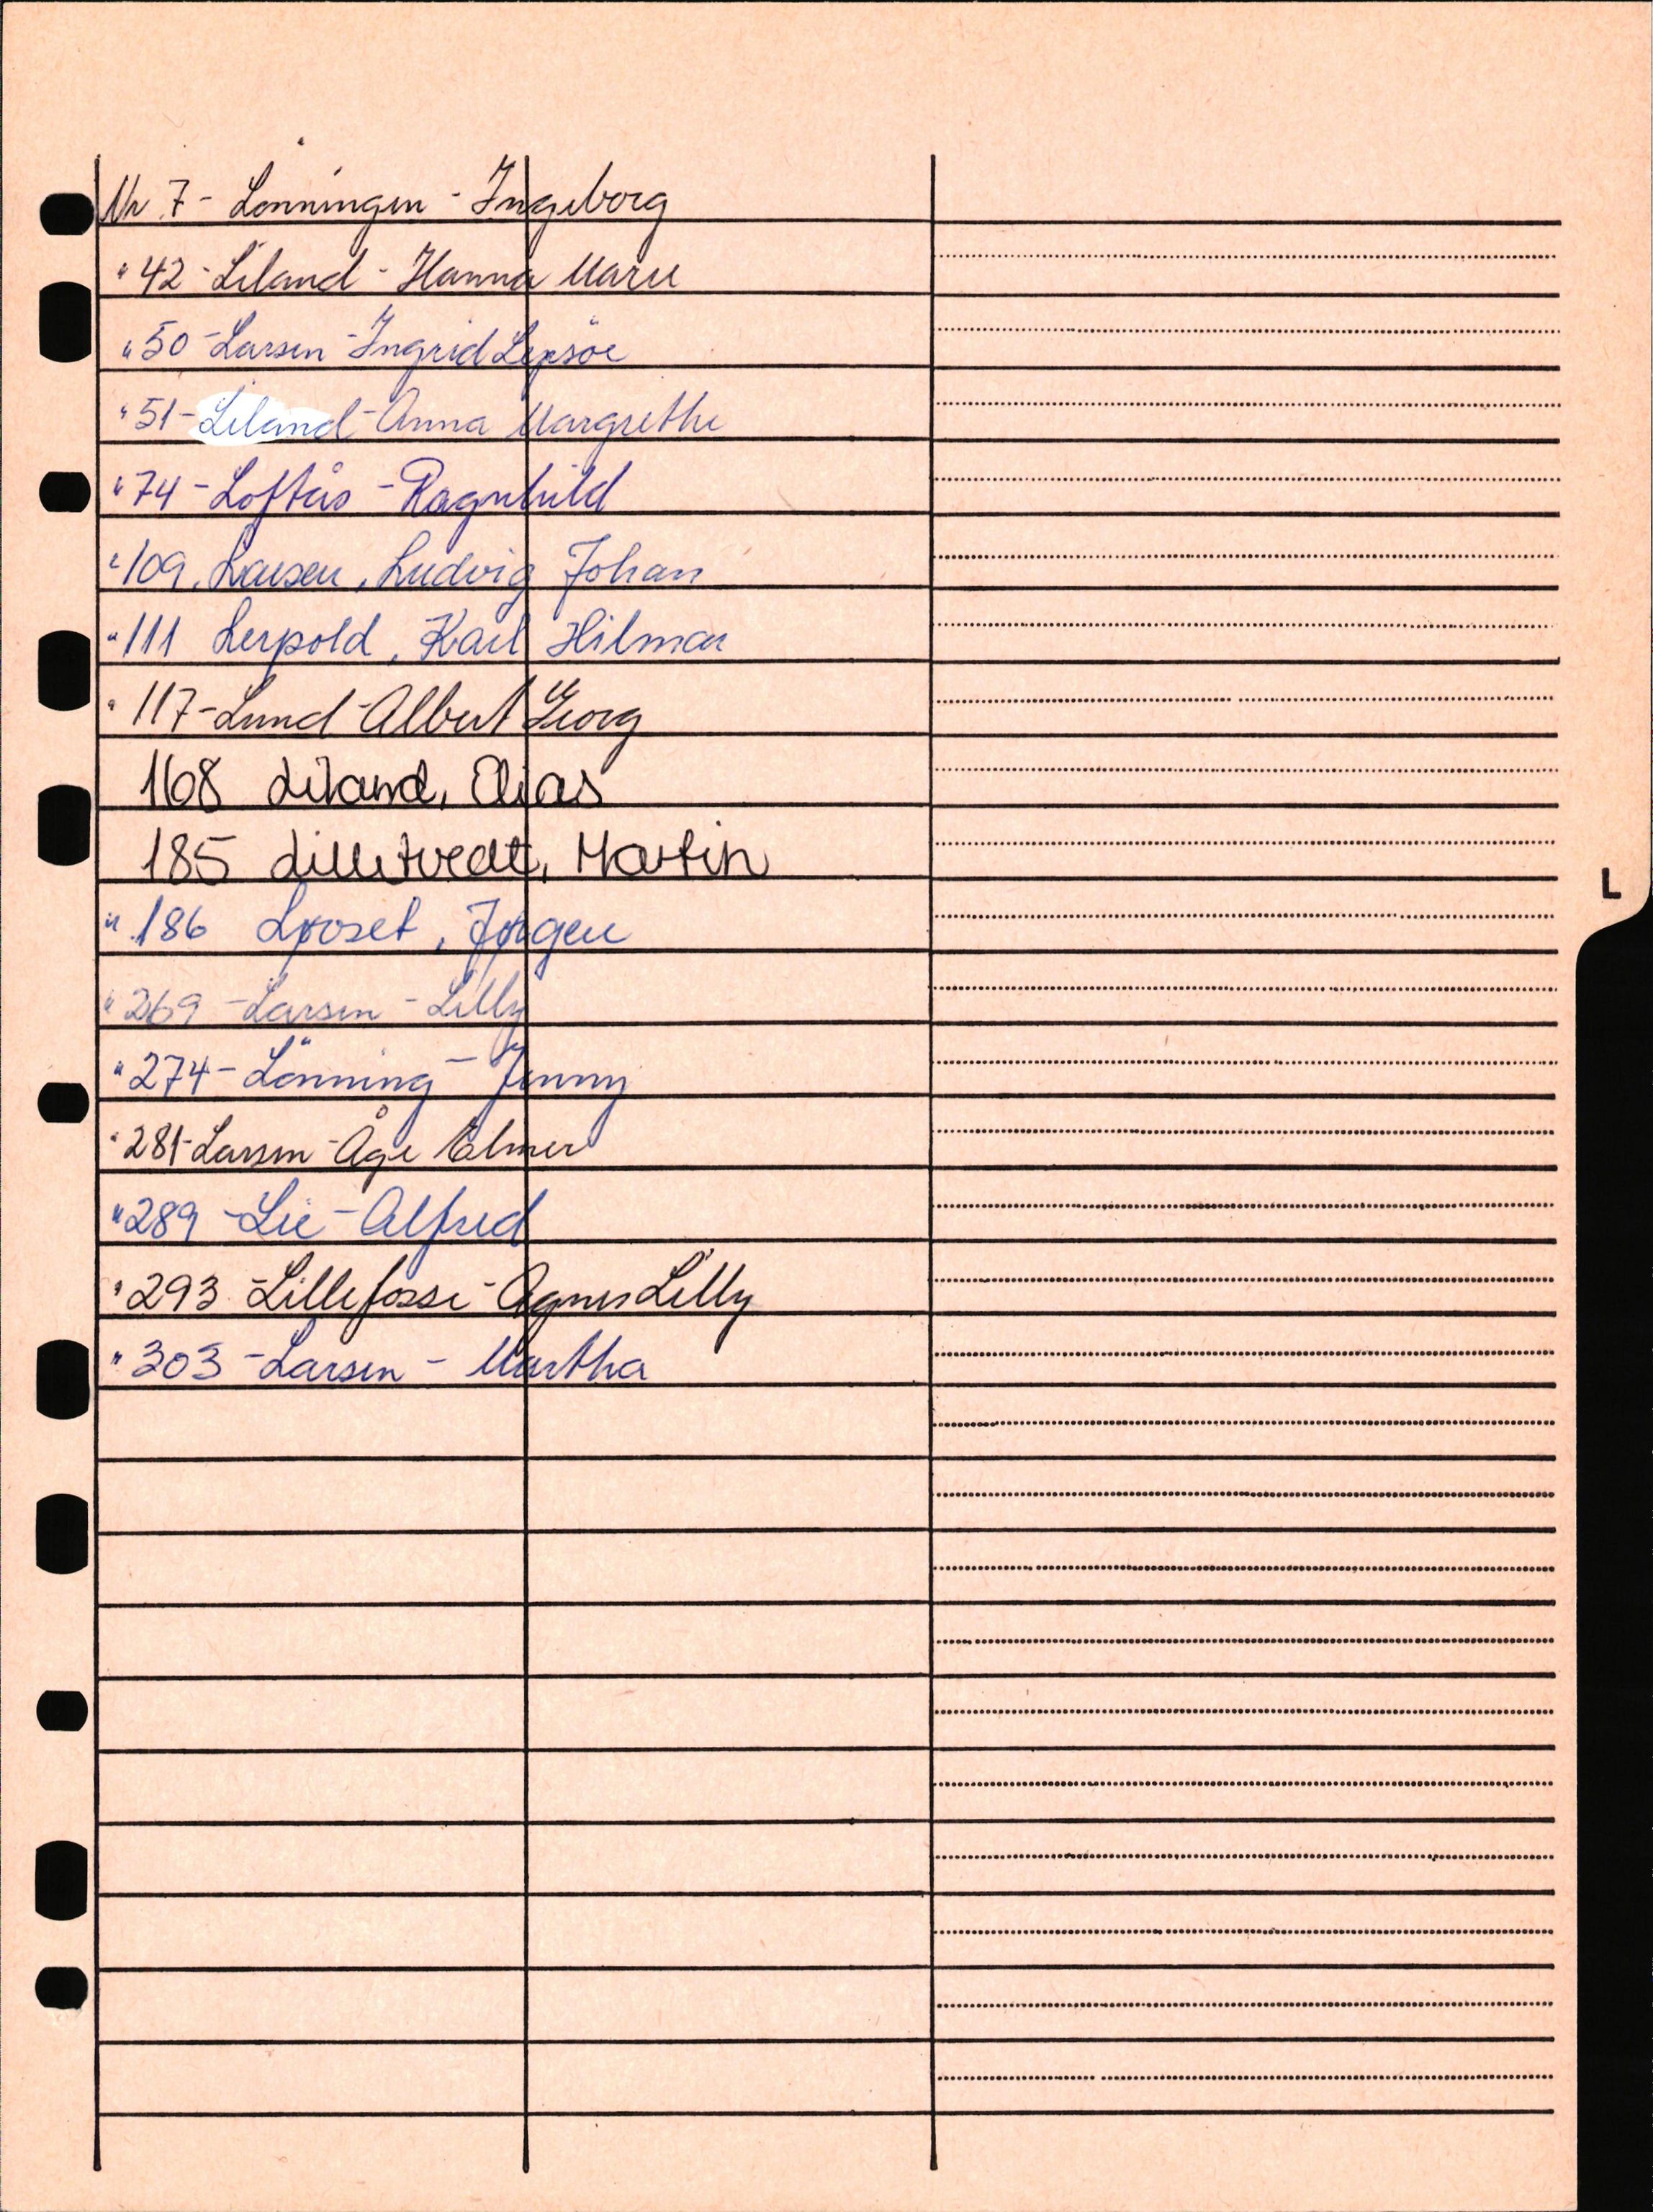 Nr 7 - Lönningen - Ingeborg
" 42 - Liland - Hanna Marie
" 50 - Larsen - Ingrid Lepsöe
" 51 - Liland - Anna Margrethe
" 74 - Loftås - Ragnhild
" 109, Larsen, Ludvig Johan
" 111 Lerpold, Karl Hilmar
" 117 - Lund - Albert Georg
168 Liland, Elias
185 Lilletvedt, Martin
" 186 Jørgen
" 269 - Larsen - Lilly
" 274 - Lönning - Jenny
" 281 - Larsen - Åge Elmer
" 289 - Lie - Alfred
" 293 - Lillefosse - Agnes Lilly
" 303 - Larsen - Martha
L